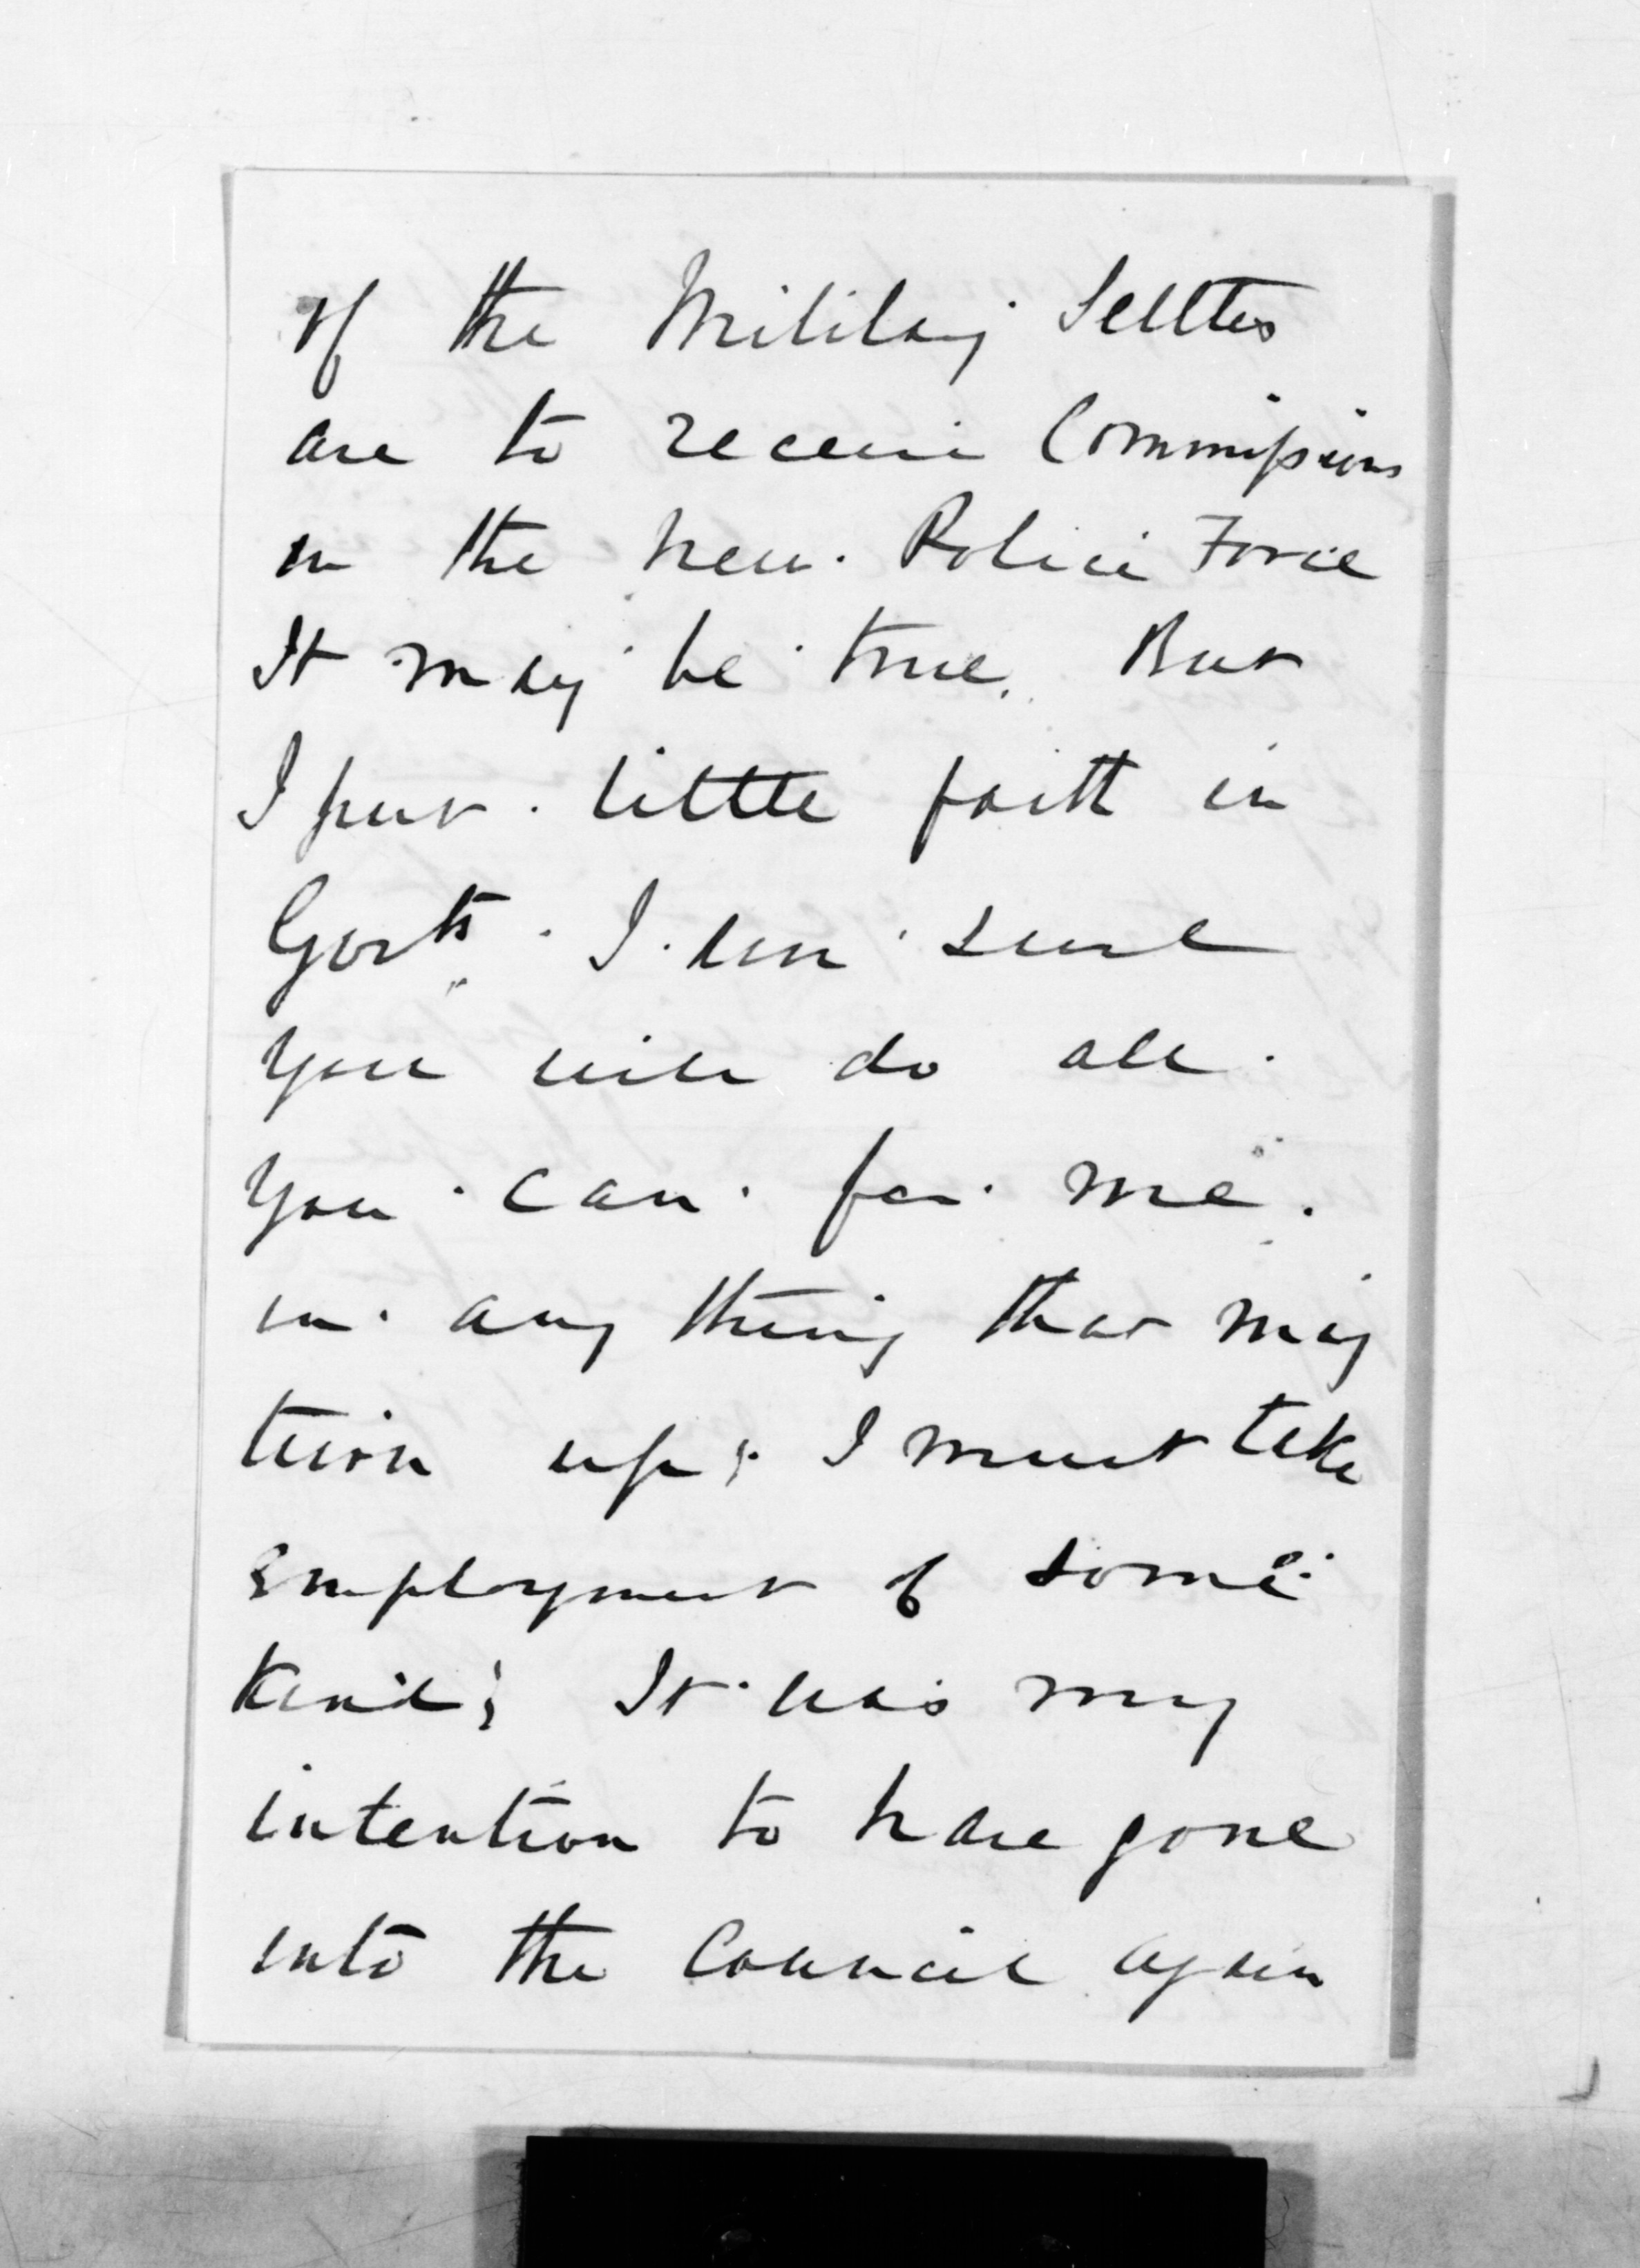 of the Military Settlrs
are to receive Commissions
in the new Police Force
It may be true. But
I put little faith in
Govts. I am sure
you will do all
you can for me.
in any thing that may
turn up; I must take
employment of some
kind; It was my
intention to have gone
into the Council again